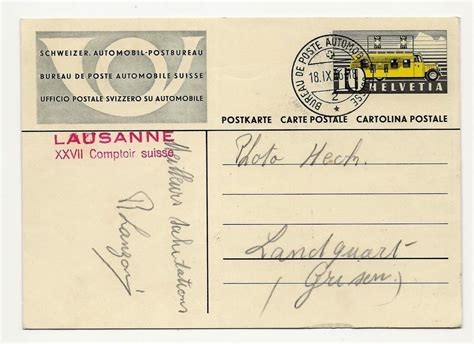 SCHWEIZER. AUTOMOBIL-POSTBUREAU
BUREAU DE POSTE AUTOMOBILE SUISSE
UFFICIO POSTALE SVIZZERO SU AUTOMOBILE
BUREAU DE POSTE AUTOMOBILE SUISSE
18.IX.46
2
10
HELVETIA
POSTKARTE CARTE POSTALE CARTOLINA POSTALE
LAUSANNE
XXVII Comptoir suisse
Meilleurs salutations
Photo Hech.
Landquart
(Grisen.)